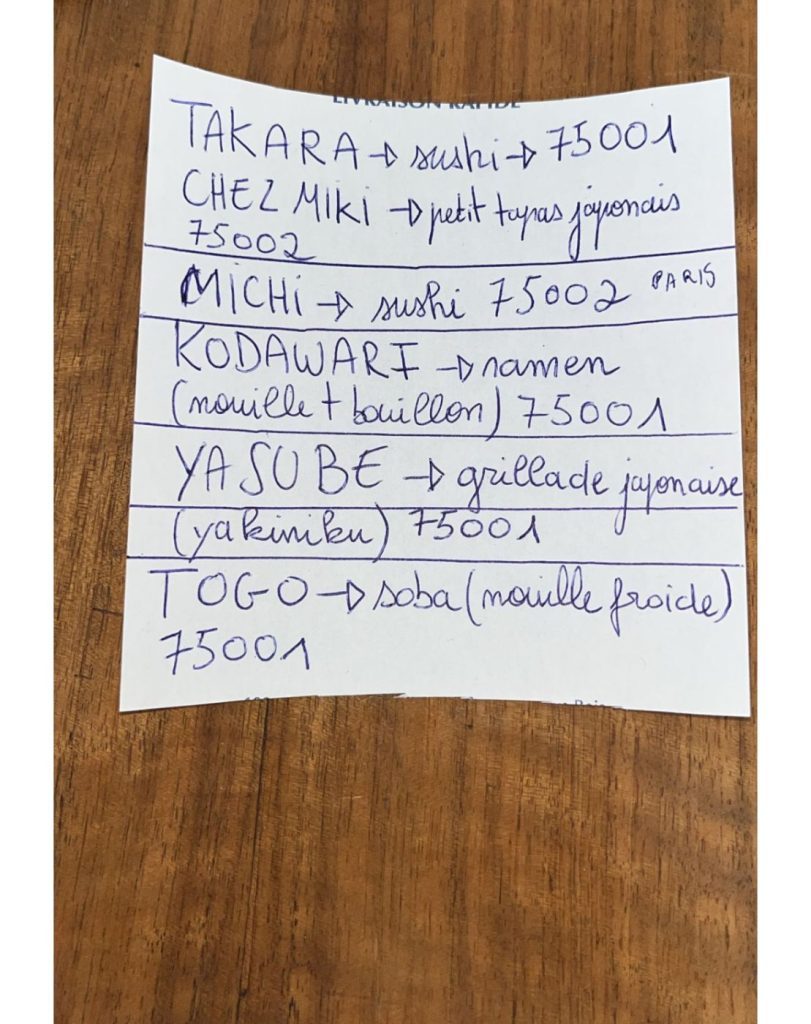 LIVRAISON RAPIDE
TAKARA → sushi → 75001
CHEZ MIKI → petit tapas japonais
75002
MICHI → sushi 75002 PARIS
KODAWARI → ramen
(nouille + bouillon) 75001
YASUBE → grillade japonaise
(yakiniku) 75001
TOGO → soba (nouille froide)
75001